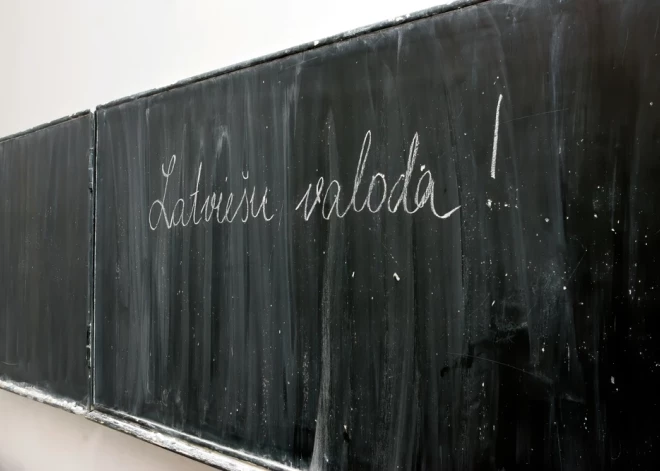 Latviešu valoda !